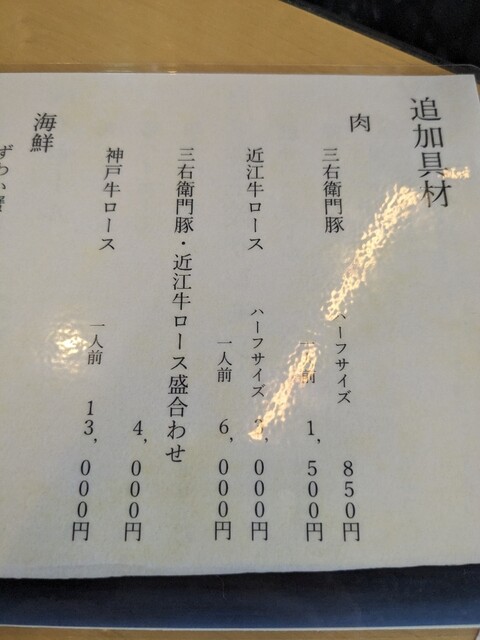 追加具材
肉
三右衛門豚
ハーフサイズ 850円
一人前 1,500円
近江牛ロース
ハーフサイズ ,000円
一人前 6,000円
三右衛門豚・近江牛ロース盛合わせ
4,000円
神戸牛ロース
一人前 13,000円
海鮮
ずわい蟹